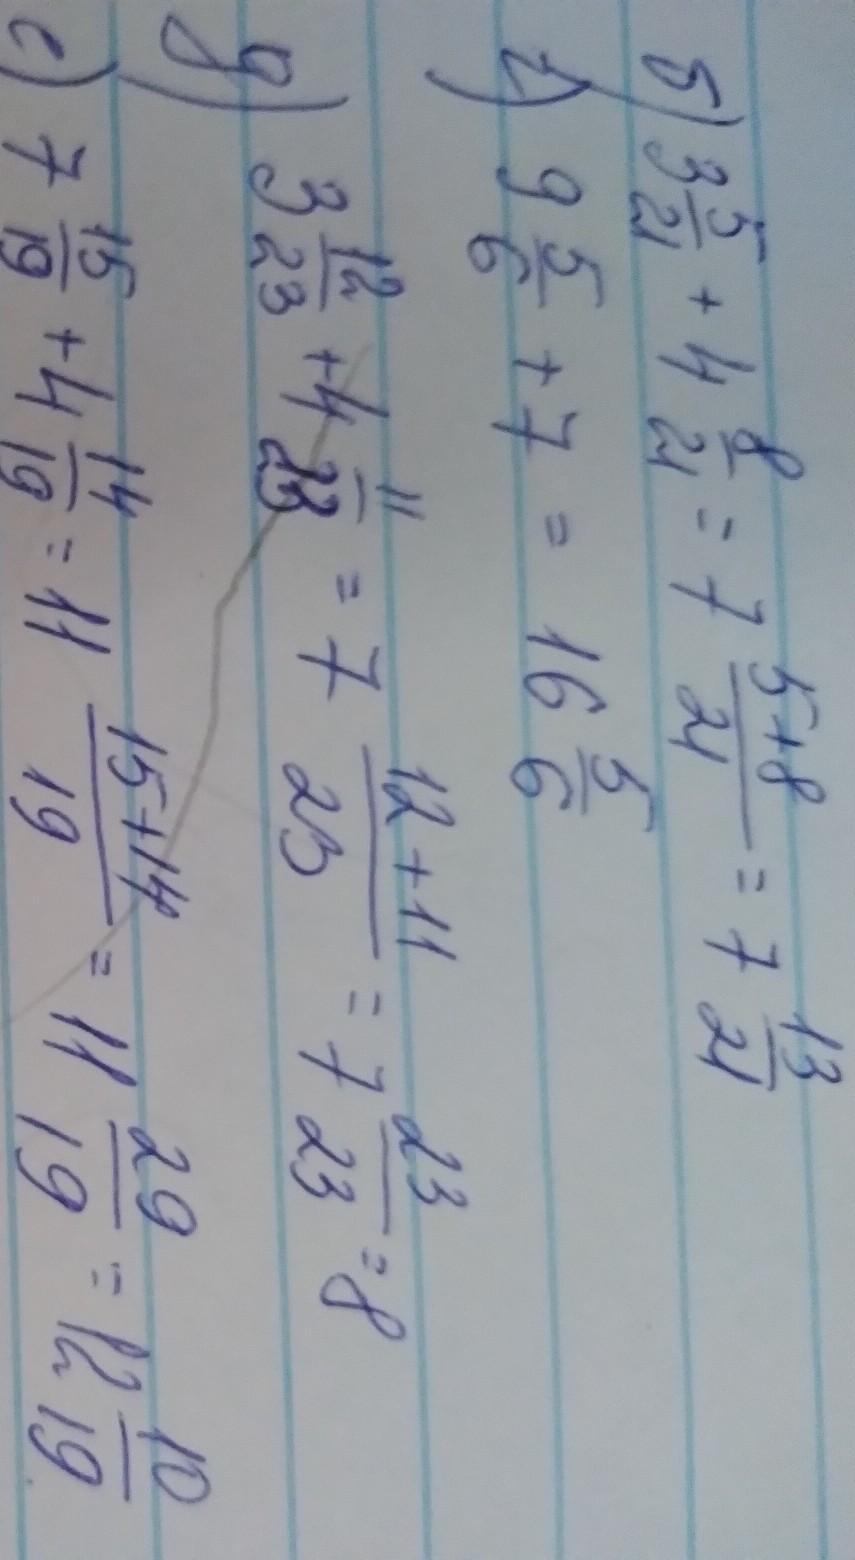 б) 3 5/21 + 4 8/21 = 7 5+8/21 = 7 13/21
г) 9 5/6 + 7 = 16 5/6
д) 3 12/23 + 4 11/23 = 7 12+11/23 = 7 23/23 = 8
е) 7 15/19 + 4 14/19 = 11 15+14/19 = 11 29/19 = 12 10/19